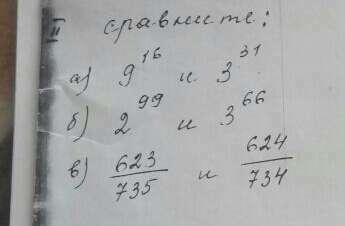 II сравните:
а) 9^16 и 3^31
б) 2^99 и 3^66
в) 623/735 и 624/734